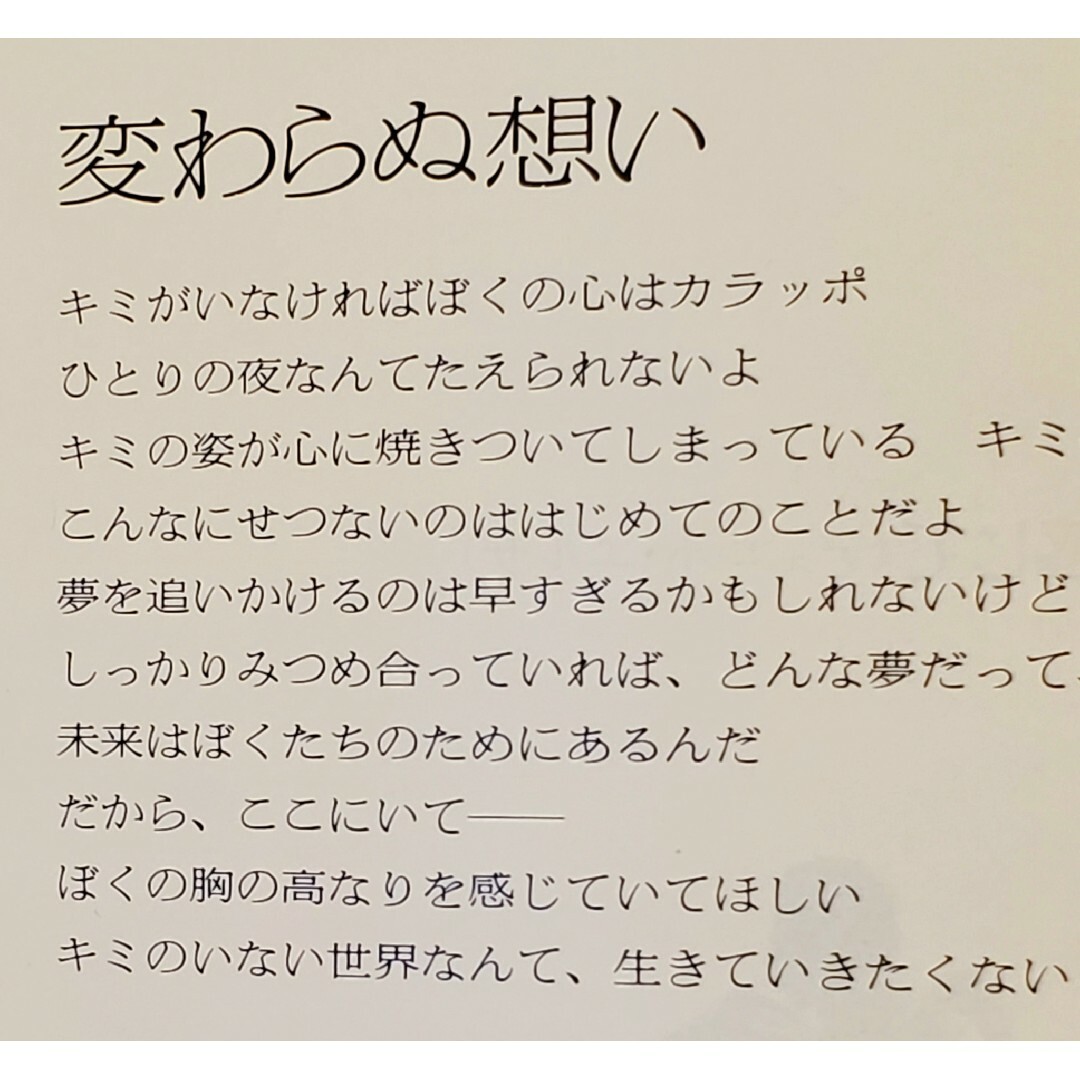 変わらぬ想い
キミがいなければぼくの心はカラッポ
ひとりの夜なんてたえられないよ
キミの姿が心に焼きついてしまっている　キミ
こんなにせつないのははじめてのことだよ
夢を追いかけるのは早すぎるかもしれないけど
しっかりみつめ合っていれば、どんな夢だって、
未来はぼくたちのためにあるんだ
だから、ここにいて――
ぼくの胸の高なりを感じていてほしい
キミのいない世界なんて、生きていきたくない